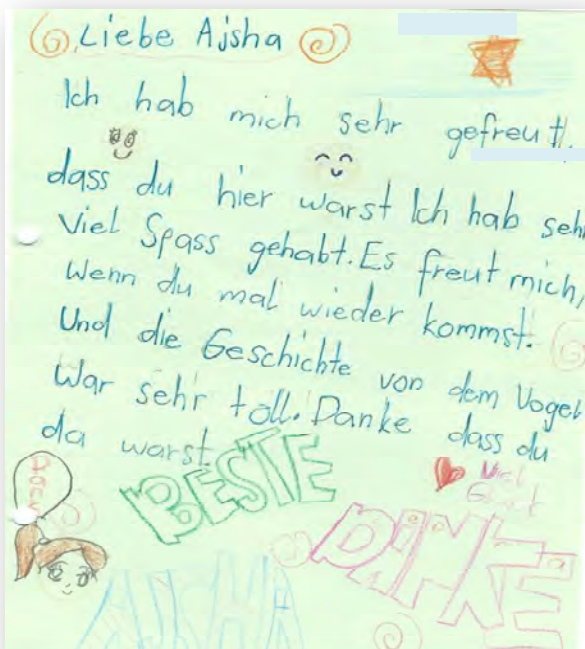 Liebe Ajsha
Ich hab mich sehr gefreut,
dass du hier warst Ich hab sehr
Viel Spass gehabt. Es freut mich,
Wenn du mal wieder kommst.
Und die Geschichte von dem Vogel
War sehr toll. Danke dass du
da warst.
BESTE
Viel
DANKE
AJSHA